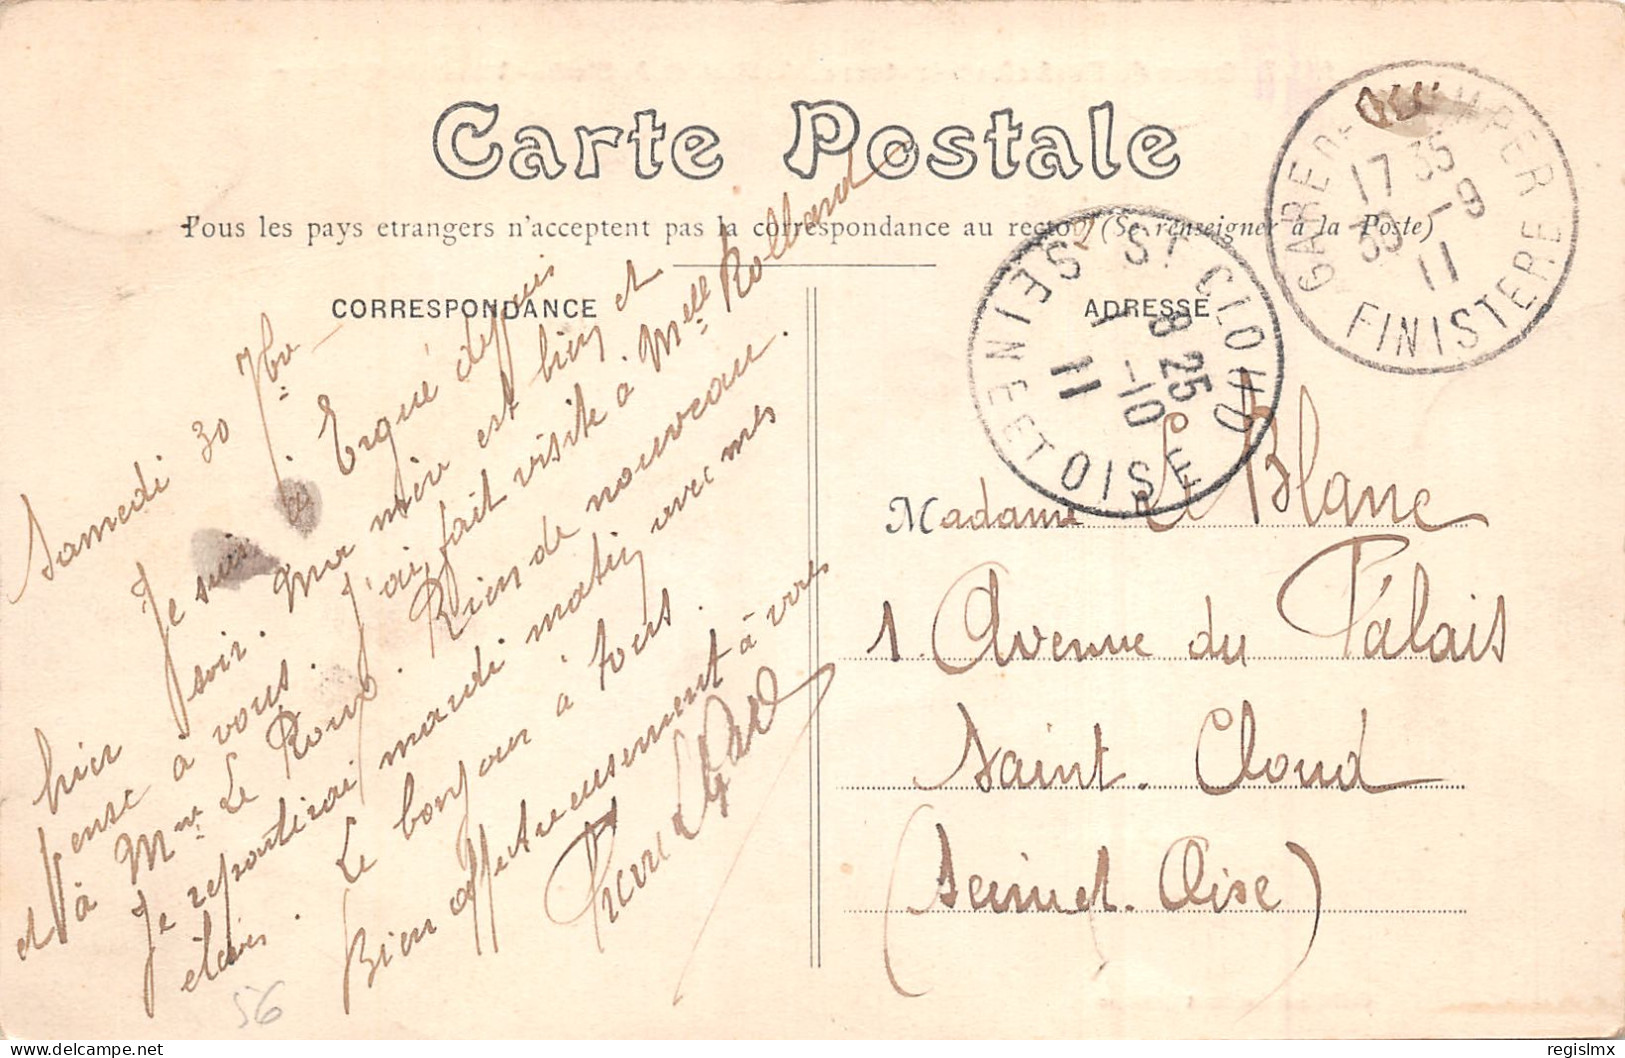 Carte Postale
Tous les pays etrangers n'acceptent pas la correspondance au recto (Se renseigner à la Poste)
CORRESPONDANCE
ADRESSE
Samedi 30 7bre
Je suis à Ergué depuis
hier soir. Ma mère est bien et
pense à vous. J'ai fait visite à Melle Rolland
et à Mme Le Roux. Rien de nouveau.
Je repartirai mardi matin avec mes
élèves. Le bonjour à tous.
Bien affectueusement à vous
Madame Le Blanc
1. Avenue du Palais
Saint-Cloud
(Seine et-Oise)
GARE DE QUIMPER
17 35
30 -9
11
FINISTERE
ST CLOUD
8 25
1 -10
11
SEINE ET OISE
56
regislmx